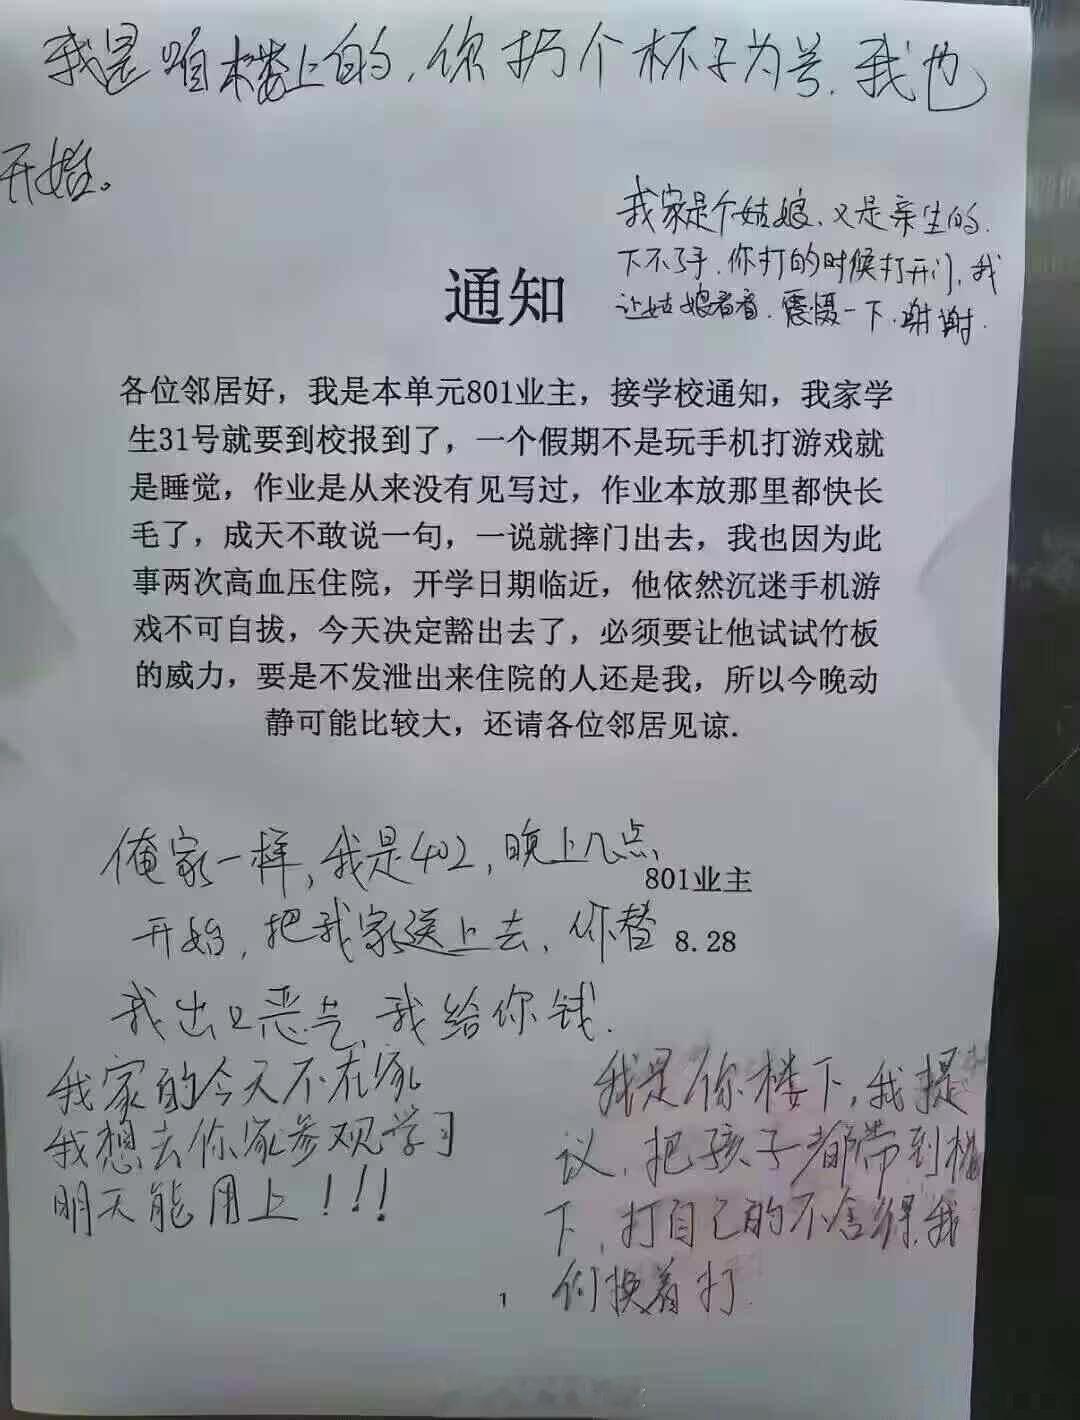 我是咱楼上的，你扔个杯子为号，我也
开始。
我家是个姑娘，又是亲生的，
下不了手，你打的时候打开门，我
让姑娘看看，震慑一下，谢谢.
通知
各位邻居好，我是本单元801业主，接学校通知，我家学
生31号就要到校报到了，一个假期不是玩手机打游戏就
是睡觉，作业是从来没有见写过，作业本放那里都快长
毛了，成天不敢说一句，一说就摔门出去，我也因为此
事两次高血压住院，开学日期临近，他依然沉迷手机游
戏不可自拔，今天决定豁出去了，必须要让他试试竹板
的威力，要是不发泄出来住院的人还是我，所以今晚动
静可能比较大，还请各位邻居见谅.
801业主
8.28
俺家一样，我是402，晚上几点
开始，把我家送上去，你替
我出口恶气，我给你钱.
我家的今天不在家
我想去你家参观学习
明天能用上！！！
我是你楼下，我提
议，把孩子都带到楼
下，打自己的不舍得，我
们换着打.
1